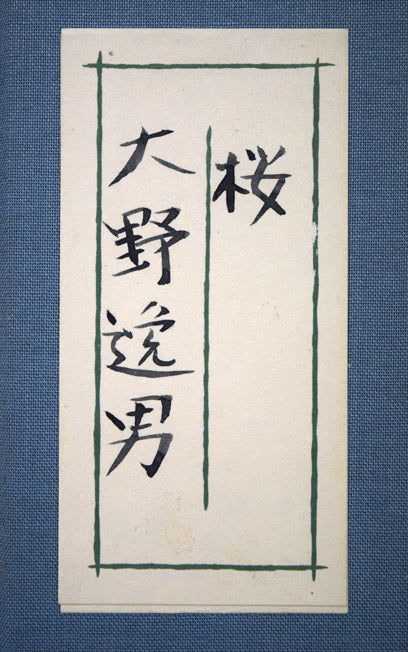 桜
大野逸男